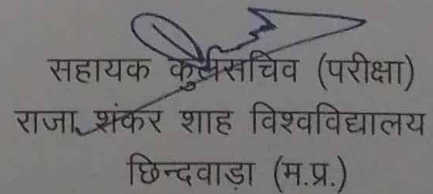 सहायक कुलसचिव (परीक्षा)
राजा शंकर शाह विश्वविद्यालय
छिन्दवाड़ा (म.प्र.)